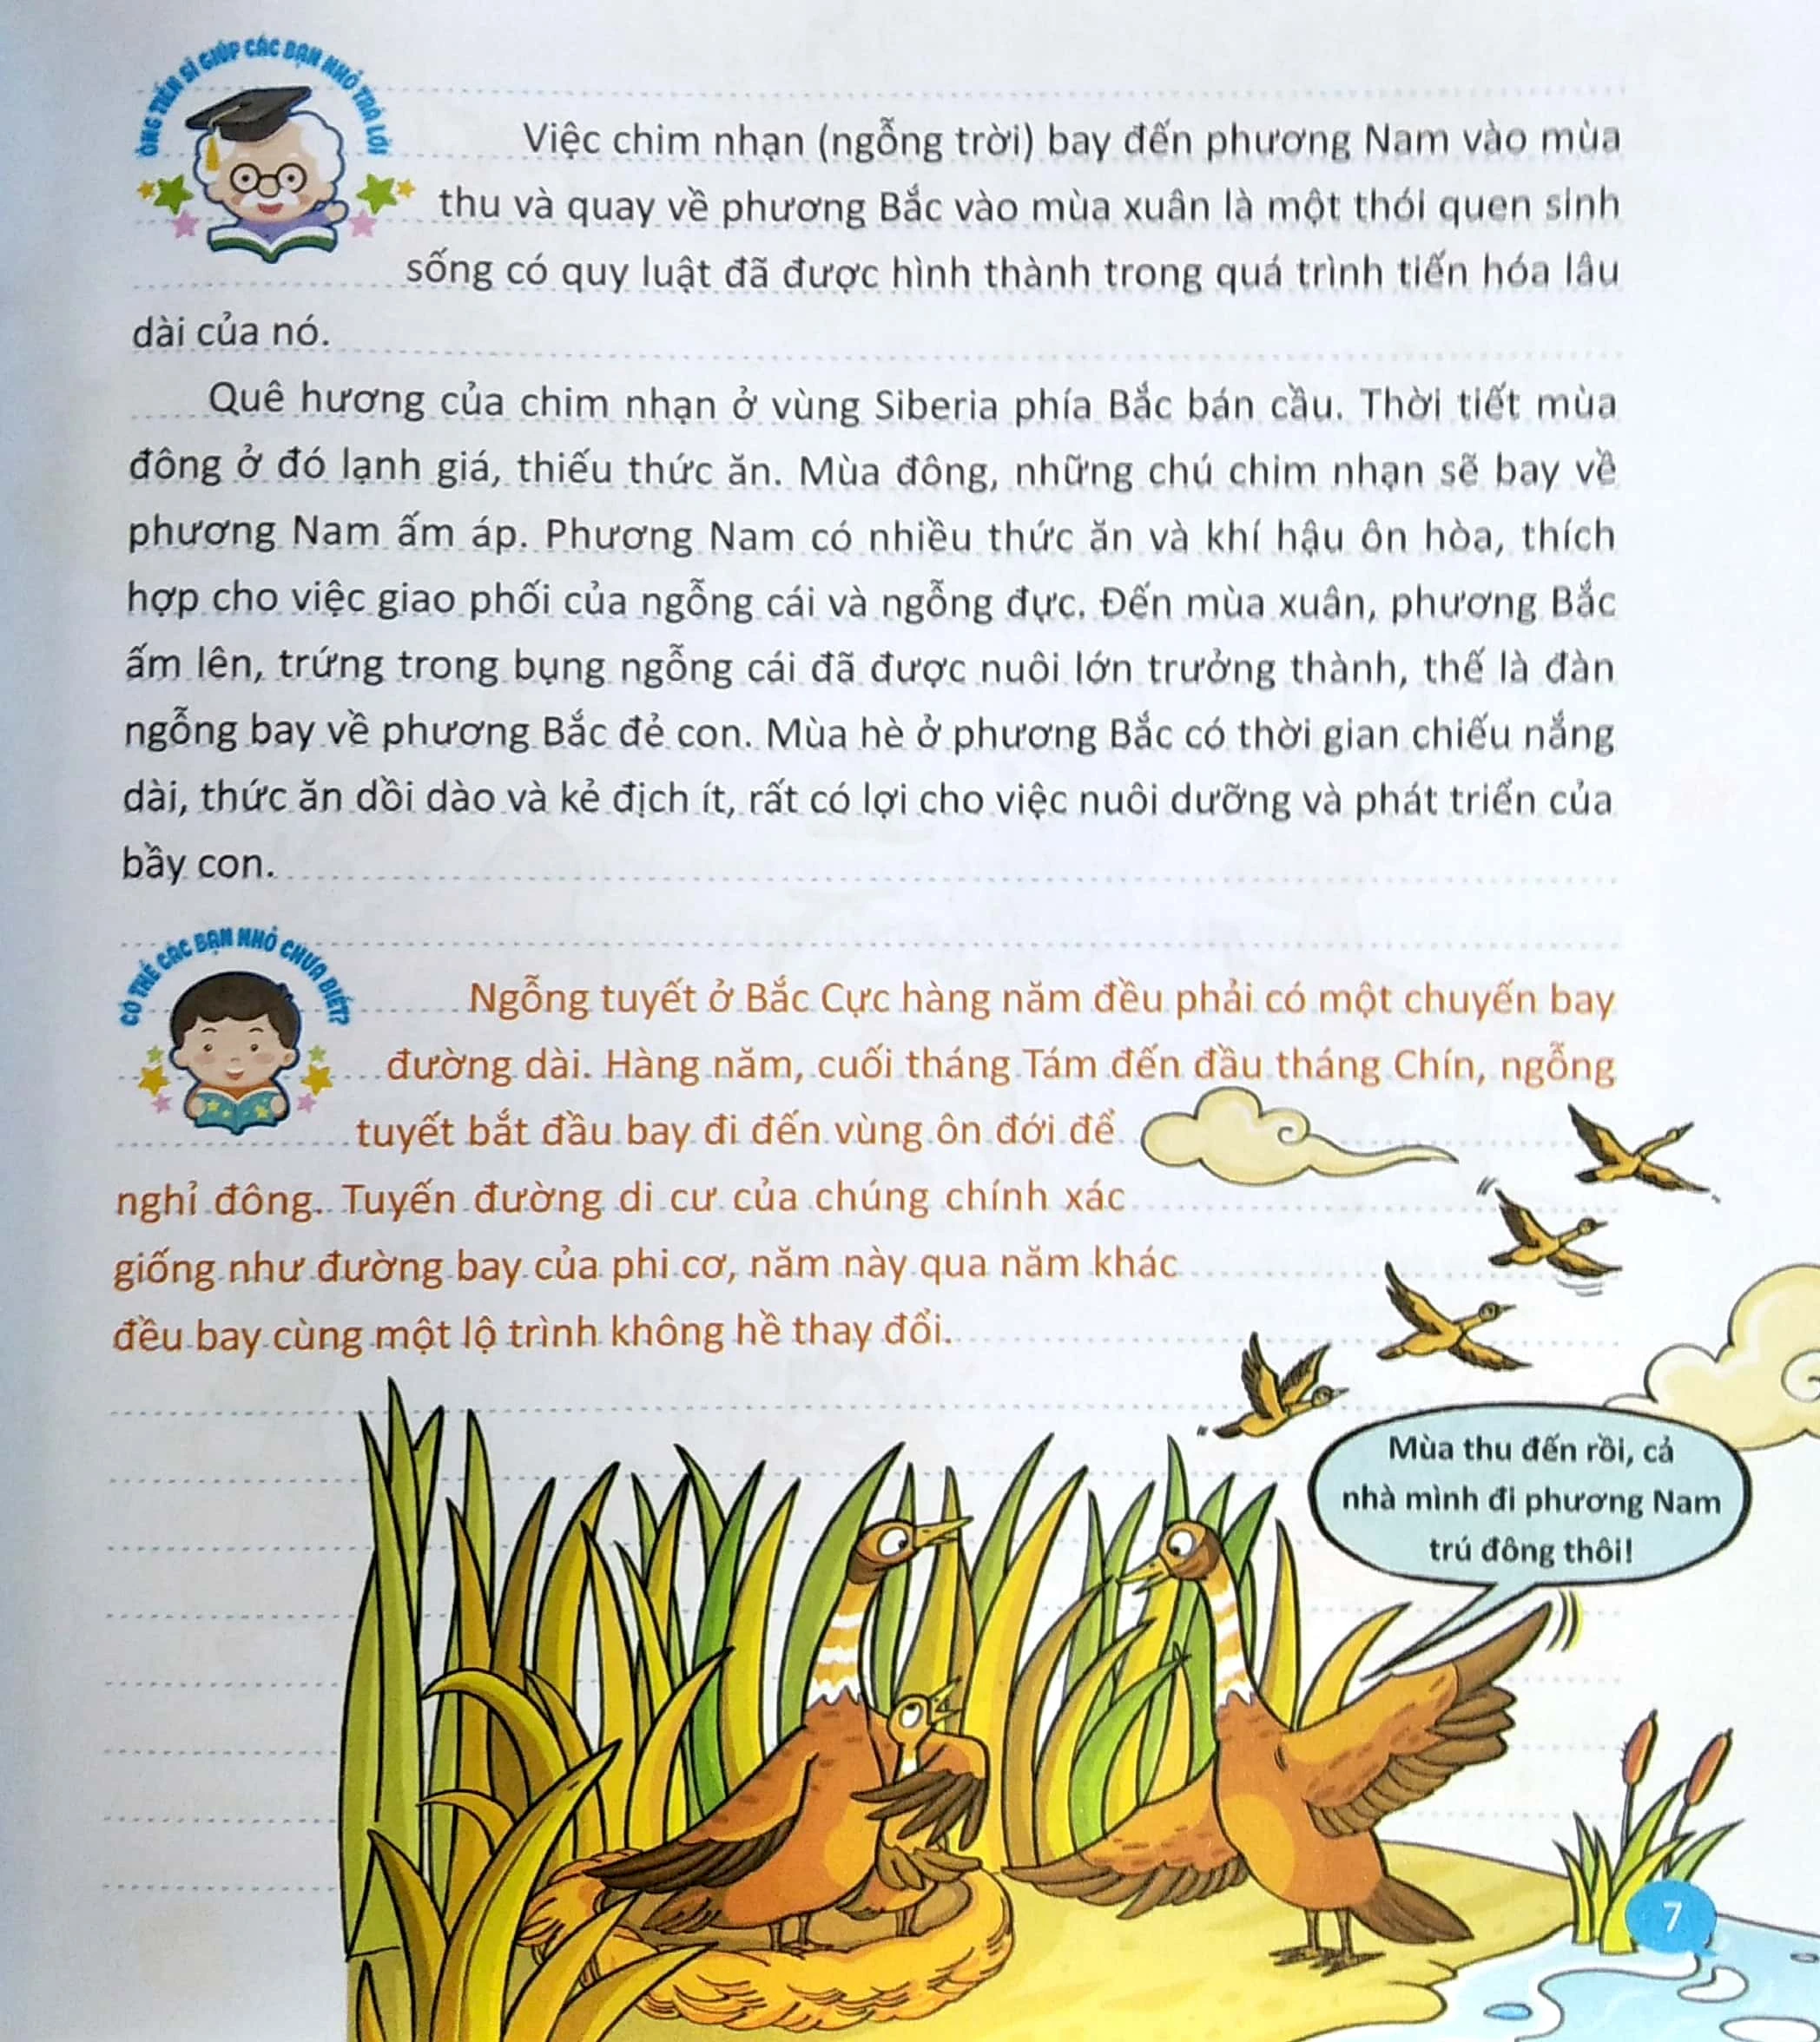 ÔNG TIẾN SĨ GIÚP CÁC BẠN NHỎ TRẢ LỜI
Việc chim nhạn (ngỗng trời) bay đến phương Nam vào mùa
thu và quay về phương Bắc vào mùa xuân là một thói quen sinh
sống có quy luật đã được hình thành trong quá trình tiến hóa lâu
dài của nó.
Quê hương của chim nhạn ở vùng Siberia phía Bắc bán cầu. Thời tiết mùa
đông ở đó lạnh giá, thiếu thức ăn. Mùa đông, những chú chim nhạn sẽ bay về
phương Nam ấm áp. Phương Nam có nhiều thức ăn và khí hậu ôn hòa, thích
hợp cho việc giao phối của ngỗng cái và ngỗng đực. Đến mùa xuân, phương Bắc
ấm lên, trứng trong bụng ngỗng cái đã được nuôi lớn trưởng thành, thế là đàn
ngỗng bay về phương Bắc đẻ con. Mùa hè ở phương Bắc có thời gian chiếu nắng
dài, thức ăn dồi dào và kẻ địch ít, rất có lợi cho việc nuôi dưỡng và phát triển của
bầy con.
CÓ THỂ CÁC BẠN NHỎ CHƯA BIẾT?
Ngỗng tuyết ở Bắc Cực hàng năm đều phải có một chuyến bay
đường dài. Hàng năm, cuối tháng Tám đến đầu tháng Chín, ngỗng
tuyết bắt đầu bay đi đến vùng ôn đới để
nghỉ đông. Tuyến đường di cư của chúng chính xác
giống như đường bay của phi cơ, năm này qua năm khác
đều bay cùng một lộ trình không hề thay đổi.
Mùa thu đến rồi, cả
nhà mình đi phương Nam
trú đông thôi!
7